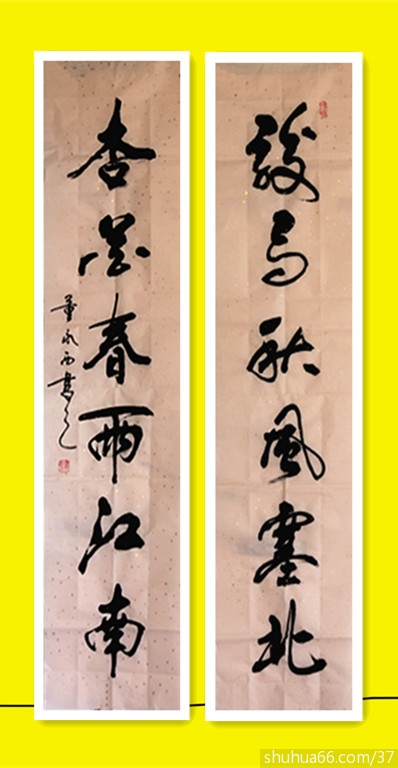 骏马秋風塞北
杏花春雨江南
shuhua66.com/37